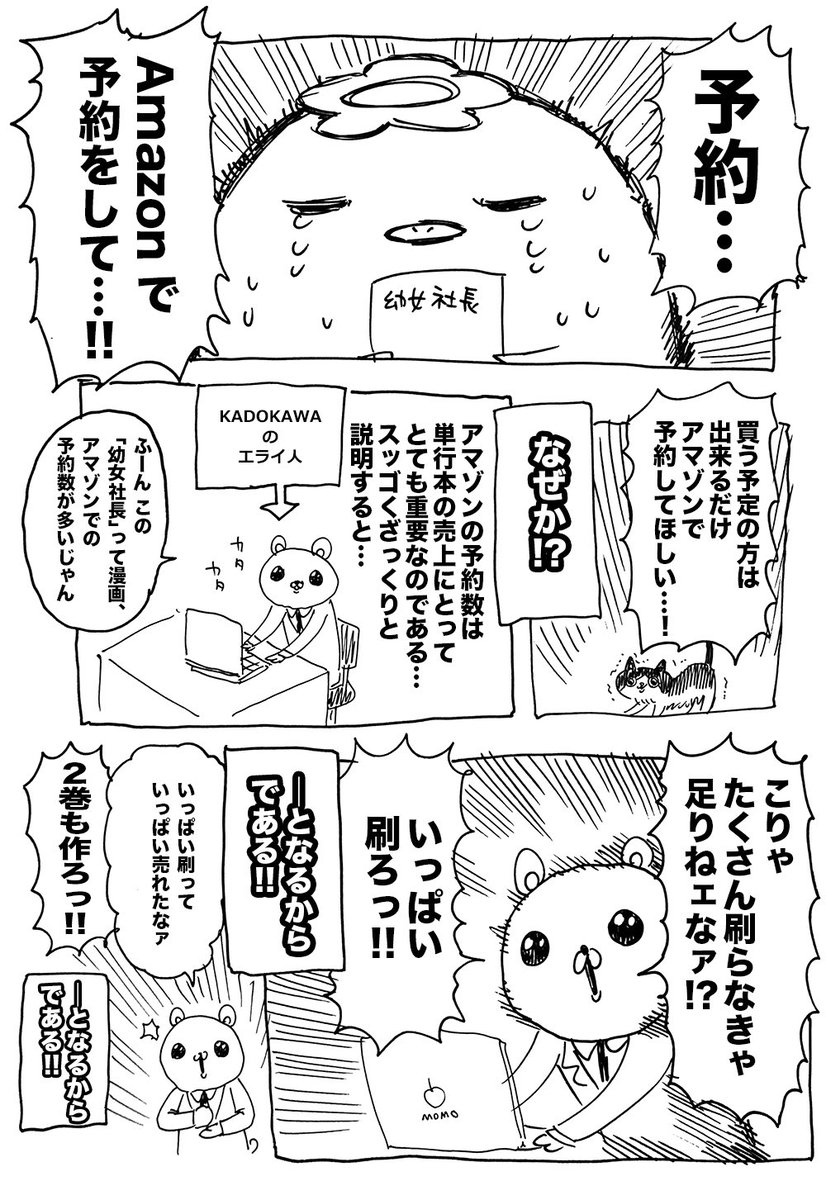 予約…
Amazonで
予約をして…!!
幼女社長
買う予定の方は
出来るだけ
アマゾンで
予約してほしい…!
なぜか!?
アマゾンの予約数は
単行本の売上にとって
とても重要なのである…
スッゴくざっくりと
説明すると…
KADOKAWA
の
エライ人
カタ
カタ
ふーん この
「幼女社長」って漫画、
アマゾンでの
予約数が多いじゃん
こりゃ
たくさん刷らなきゃ
足りねェなァ!?
いっぱい
刷ろっ!!
MOMO
ーとなるから
である!!
いっぱい刷って
いっぱい売れたなァ
2巻も作ろっ!!
ーとなるから
である!!